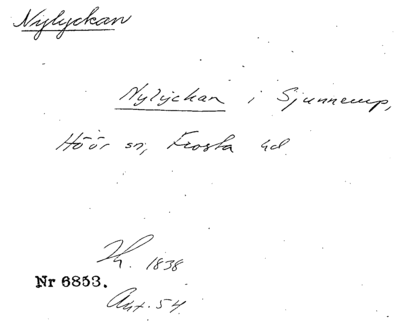 Nylyckan
Nylyckan i Sjunnerup,
Höör sn, Frosta hd.
1838
Nr 6853.
Ant. 54.